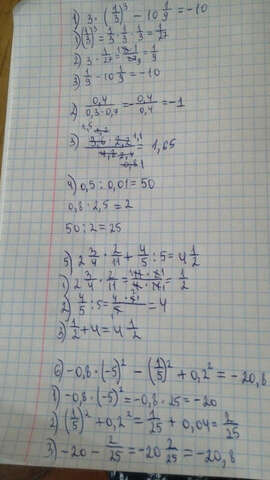 1) 3 · (1/3)³ - 10 1/9 = -10
1) (1/3)³ = 1/3 · 1/3 · 1/3 = 1/27
2) 3 · 1/27 = = 1/9
3) 1/9 - 10 1/9 = -10
2) 0,4 / 0,3-0,7 = - 0,4/0,4 = -1
3) = 1,65
4) 0,5 : 0,01 = 50
0,8 · 2,5 = 2
50 : 2 = 25
5) 2 3/4 · 2/11 + 4/5 : 5 = 4 1/2
1) 2 3/4 · 2/11 = 11 · 2 / 4 · 11 = 1/2
2) 4/5 : 5 = 4 · 5 / 5 = 4
3) 1/2 + 4 = 4 1/2
6) -0,8 · (-5)² - (1/5)² + 0,2² = -20,8
1) -0,8 · (-5)² = -0,8 · 25 = -20
2) (1/5)² + 0,2² = 1/25 + 0,04 = 2/25
3) -20 - 2/25 = -20 2/25 = -20,8